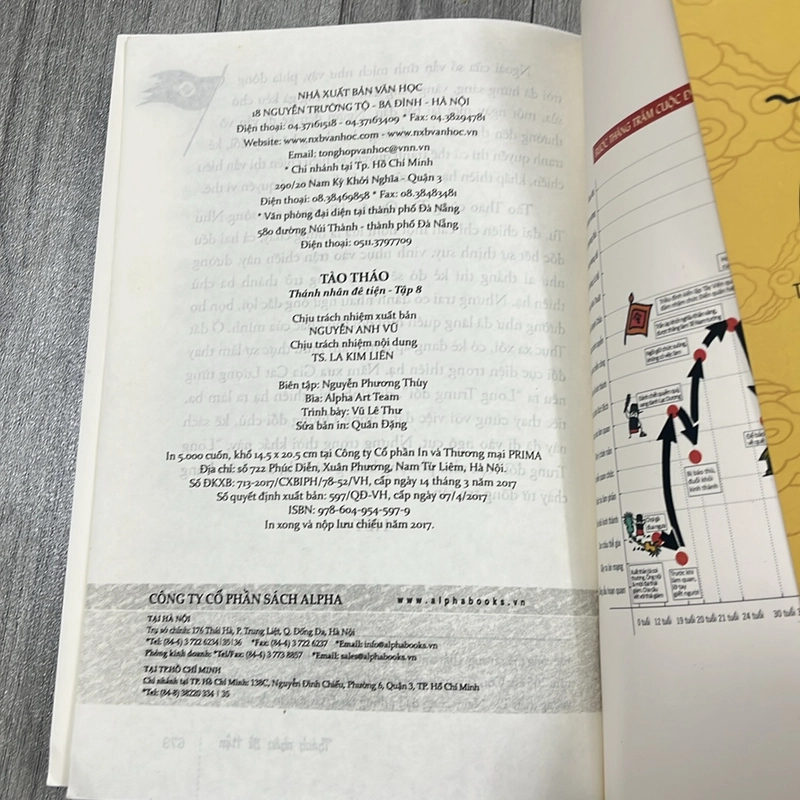 NHÀ XUẤT BẢN VĂN HỌC
18 NGUYỄN TRƯỜNG TỘ - BA ĐÌNH - HÀ NỘI
Điện thoại: 04.37161518 - 04.37163409 * Fax: 04.38294781
Website: www.nxbvanhoc.com - www.nxbvanhoc.vn
Email: tonghopvanhoc@vnn.vn
* Chi nhánh tại Tp. Hồ Chí Minh
290/20 Nam Kỳ Khởi Nghĩa - Quận 3
Điện thoại: 08.38469858 * Fax: 08.38483481
* Văn phòng đại diện tại thành phố Đà Nẵng
580 đường Núi Thành - thành phố Đà Nẵng
Điện thoại: 0511.3797709
TÀO THÁO
Thánh nhân đê tiện - Tập 8
Chịu trách nhiệm xuất bản
NGUYỄN ANH VŨ
Chịu trách nhiệm nội dung
TS. LA KIM LIÊN
Biên tập: Nguyễn Phương Thùy
Bìa: Alpha Art Team
Trình bày: Vũ Lê Thư
Sửa bản in: Quân Đặng
In 5.000 cuốn, khổ 14.5 x 20.5 cm tại Công ty Cổ phần In và Thương mại PRIMA
Địa chỉ: số 722 Phúc Diễn, Xuân Phương, Nam Từ Liêm, Hà Nội.
Số ĐKXB: 713-2017/CXBIPH/78-52/VH, cấp ngày 14 tháng 3 năm 2017
Số quyết định xuất bản: 597/QĐ-VH, cấp ngày 07/4/2017
ISBN: 978-604-954-597-9
In xong và nộp lưu chiểu năm 2017.
CÔNG TY CỔ PHẦN SÁCH ALPHA www.alphabooks.vn
TẠI HÀ NỘI
Trụ sở chính: 176 Thái Hà, P. Trung Liệt, Q. Đống Đa, Hà Nội
*Tel: (84-4) 3 722 6234|35|36 *Fax: (84-4) 3 722 6237 *Email: info@alphabooks.vn
Phòng kinh doanh: *Tel/Fax: (84-4) 3 773 8857 *Email: sales@alphabooks.vn
TẠI TP.HỒ CHÍ MINH
Chi nhánh tại TP. Hồ Chí Minh: 138C, Nguyễn Đình Chiểu, Phường 6, Quận 3, TP. Hồ Chí Minh
*Tel: (84-8) 38220 334 | 35
THĂNG TRẦM CUỘC Đ
Bị báo thù, đuổi khỏi kinh thành
Trước khi làm quan, lỡ tay giết người
0 tuổi 12 tuổi 19 tuổi 20 tuổi 21 tuổi 24 tuổi 30 tuổi